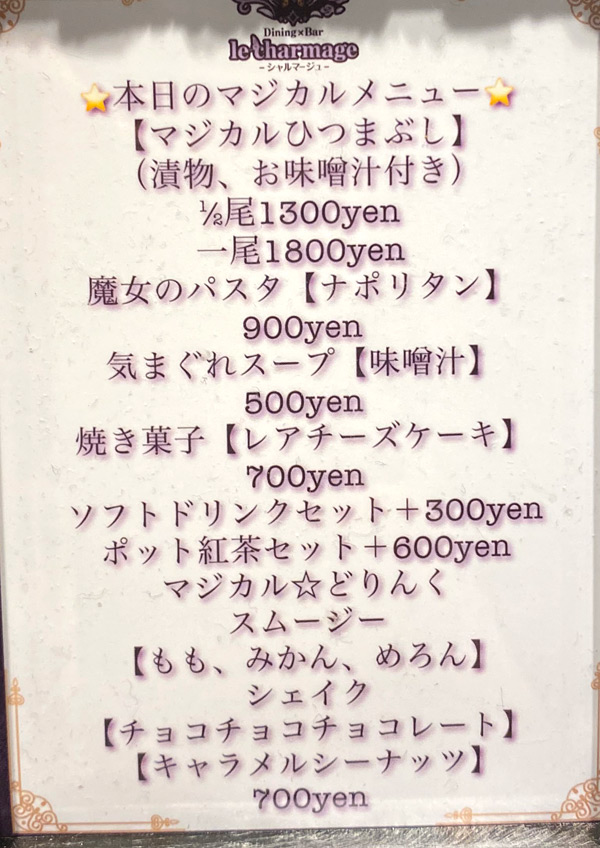 Dining×Bar
le charmage
-シャルマージュ-
⭐本日のマジカルメニュー⭐
【マジカルひつまぶし】
(漬物、お味噌汁付き)
½尾1300yen
一尾1800yen
魔女のパスタ【ナポリタン】
900yen
気まぐれスープ【味噌汁】
500yen
焼き菓子【レアチーズケーキ】
700yen
ソフトドリンクセット+300yen
ポット紅茶セット+600yen
マジカル☆どりんく
スムージー
【もも、みかん、めろん】
シェイク
【チョコチョコチョコレート】
【キャラメルシーナッツ】
700yen